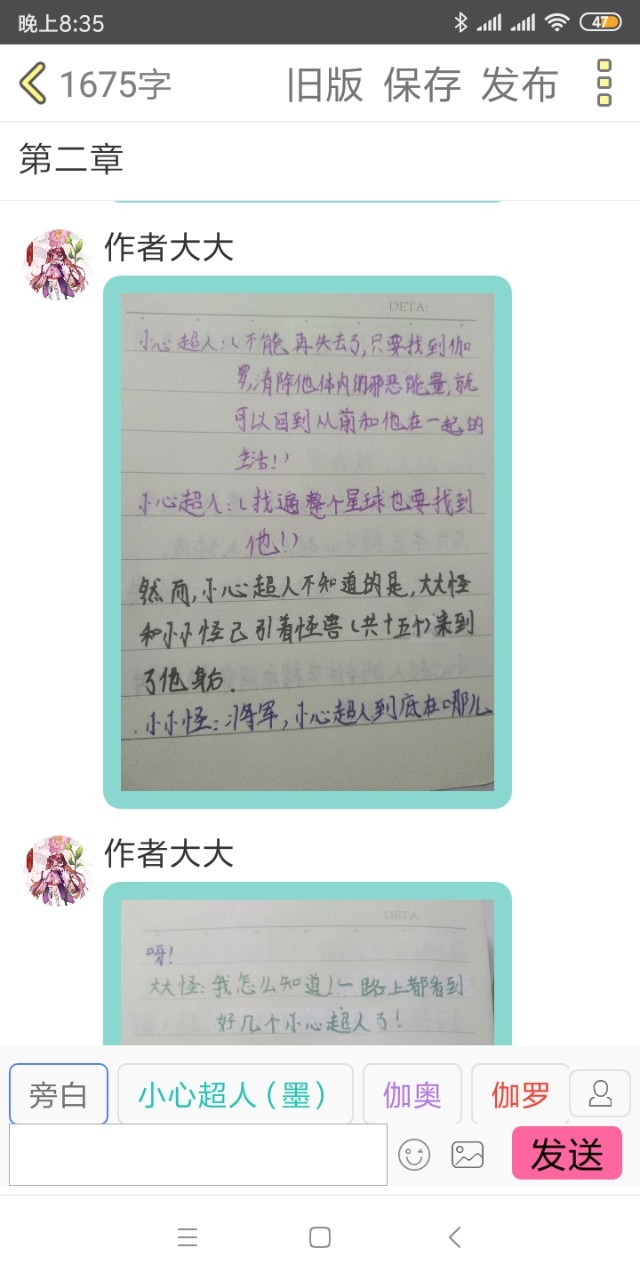 晚上8:35
47
1675字
旧版 保存 发布
第二章
作者大大
DETA:
小心超人:(不能再失去了,只要找到伽
罗,清除他体内的邪恶能量,就
可以回到从前和他在一起的
生活!)
小心超人:(找遍整个星球也要找到
他!)
然而,小心超人不知道的是,大大怪
和小小怪已引着怪兽(共十五个)来到
了他身后.
小小怪:将军,小心超人到底在哪儿
作者大大
DETA:
呀!
大大怪:我怎么知道!一路上都看到
好几个小心超人了!
旁白 小心超人(墨) 伽奥 伽罗
发送